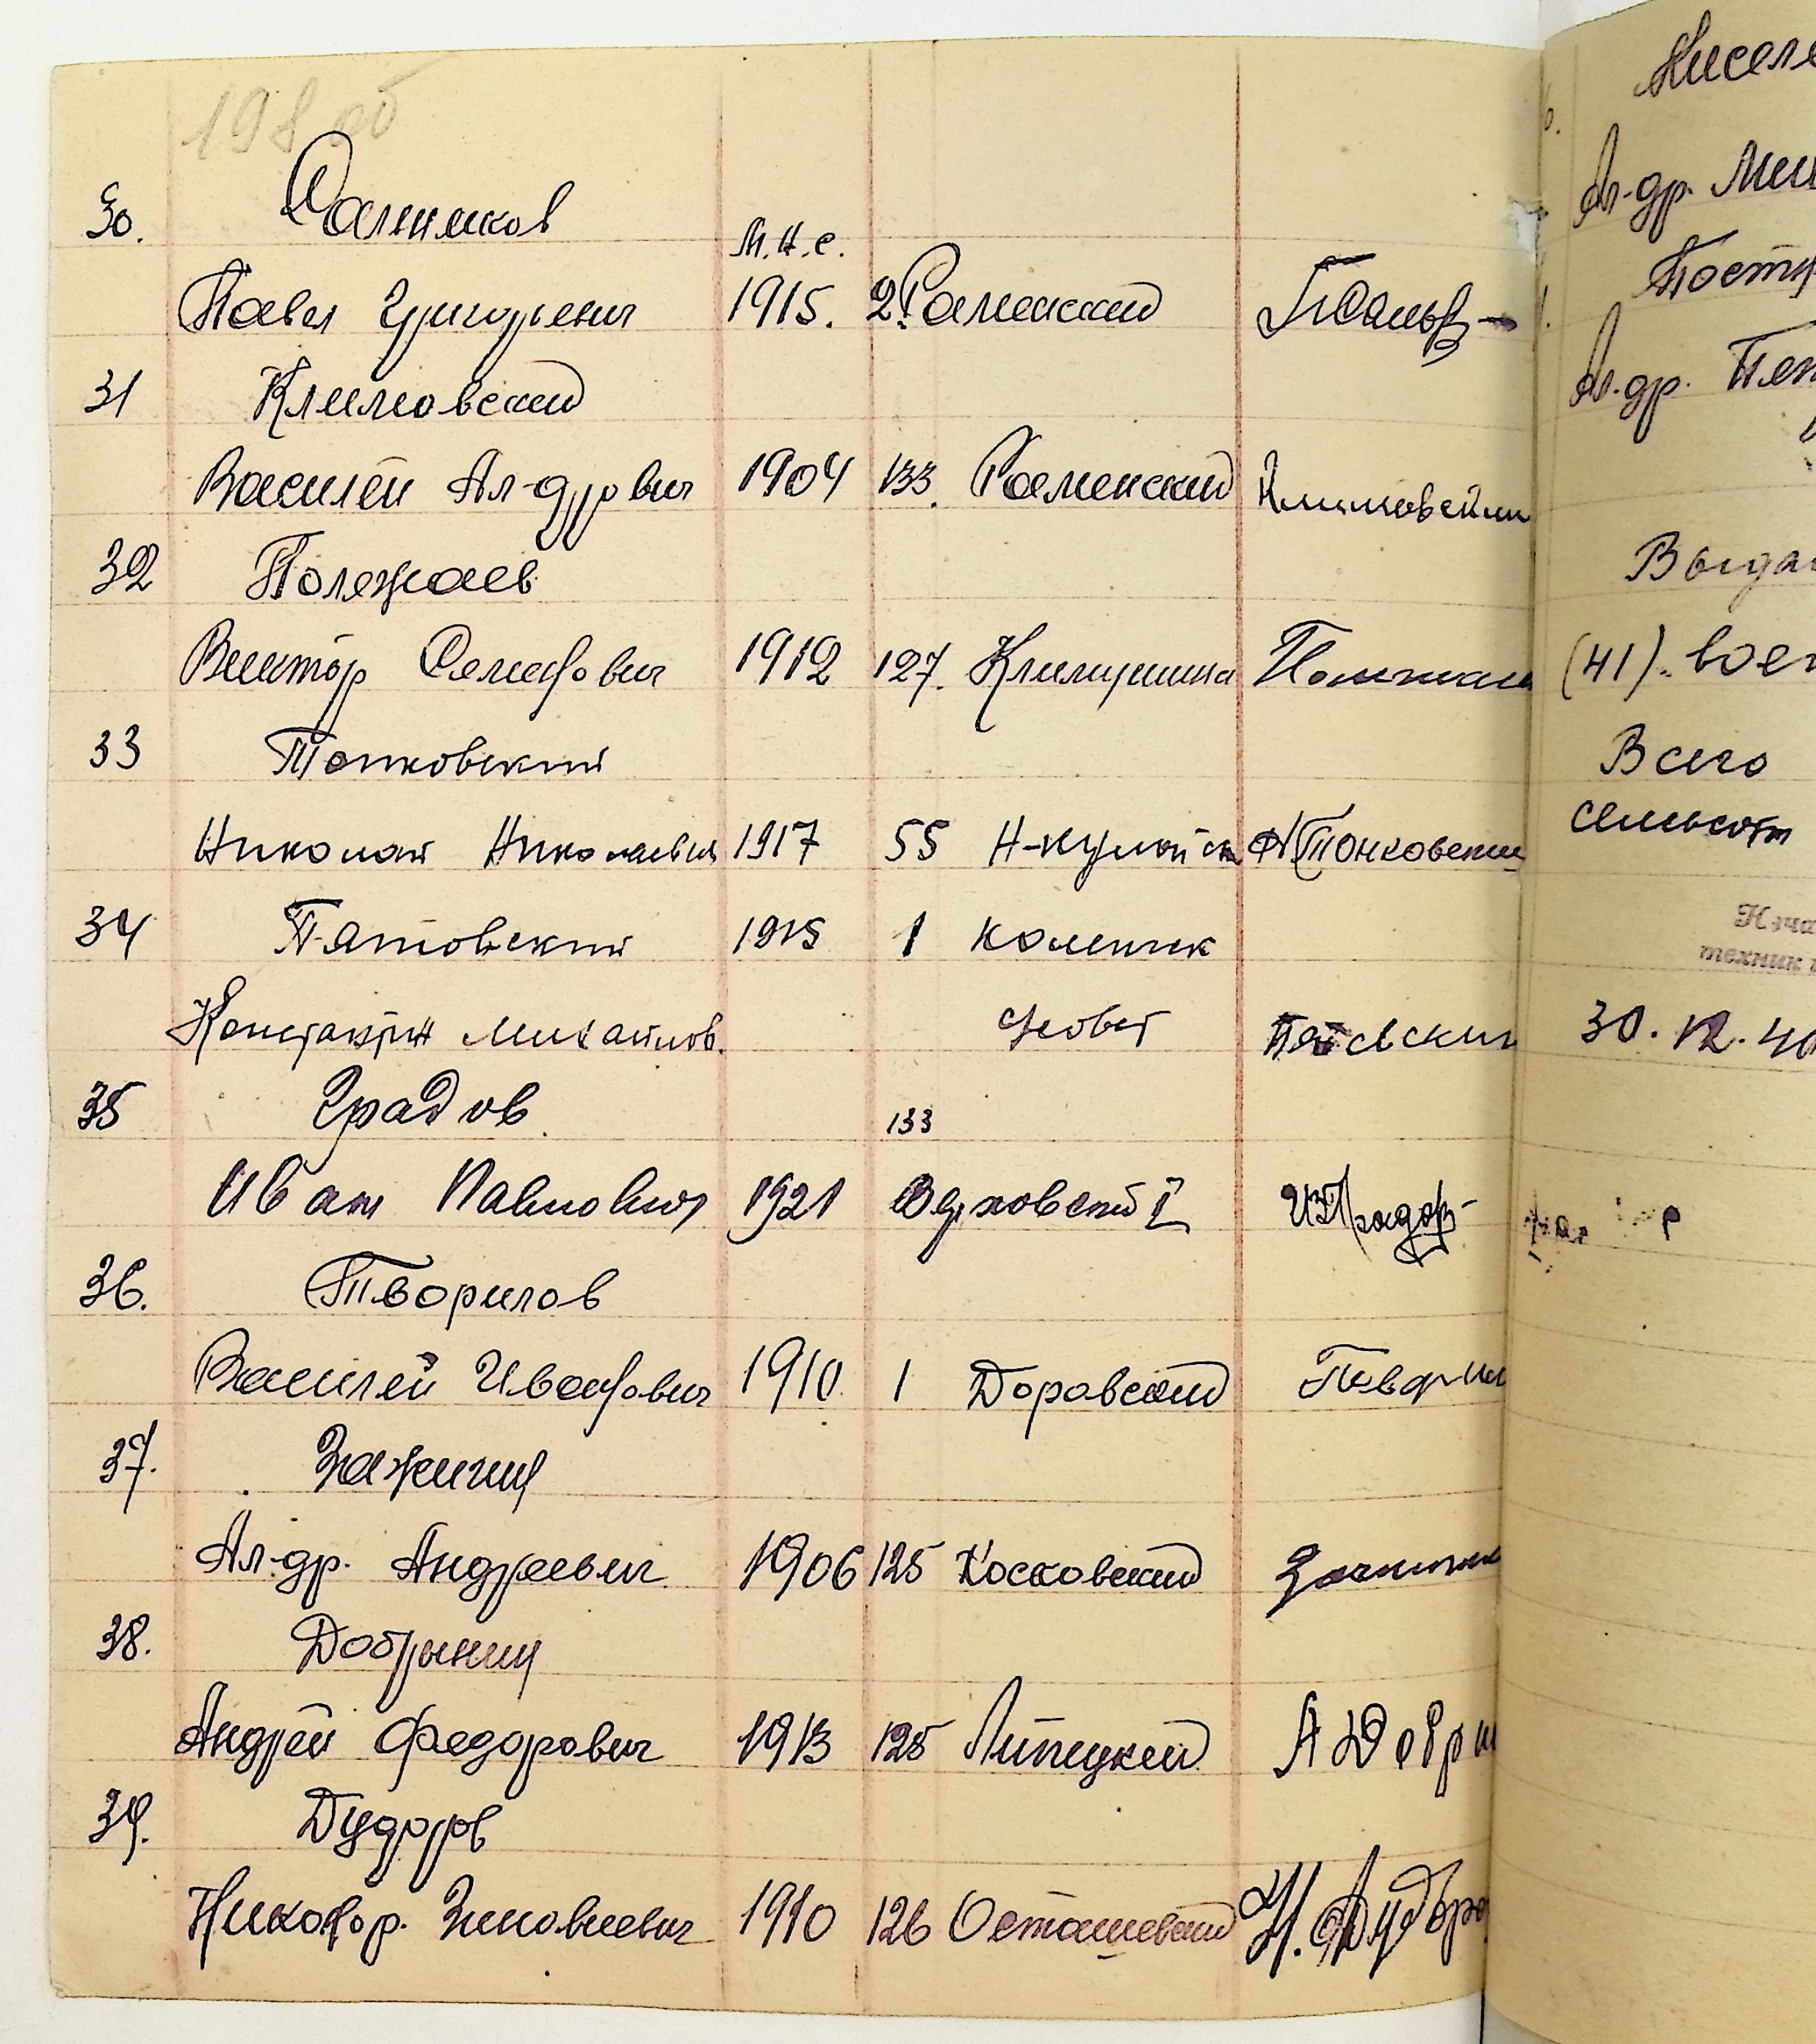 198 об
30. Сальников
М.Н.С.
Павел Григорьевич 1915. 2. Раменский ПСальн
31 Климовский
Василей Ал-дрович 1904 133. Раменский Климовский
32 Полежаев
Виктор Семенович 1912 127. Климушина Полежаев
33 Тонковский
Николай Николаевич 1917 55 Н-кулойск НТонковский
34 Пятовский 1915 1 Комитик
Константин Михайлов. Совет Пятовский
35 Градов 133
Иван Павлович 1921 Верховский I ИПГрадов
36. Творилов
Василей Иванович 1910. 1 Доровский Творил
37. Зажигин
Ал-др. Андреевич 1906 125 Косковский Зажигин
38. Добрынин
Андрей Федорович 1913 125 Липецкий А Добры
39. Дудоров
Никофор. Зиновиевич 1910 126 Осташевский Н. Дудоро
Киселе
Ал-др. Мих
Ал-др.
Выдан
(41). вое
Всего
сельсов
Нача
техник
30. 12. 40